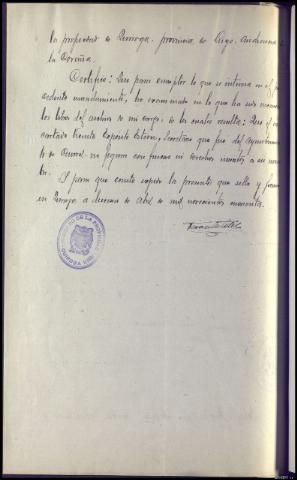 la propiedad de Quiroga, provincia de Lugo, Audiencia de
la Coruña.
Certifico: Que para cumplir lo que se interesa en el pre
cedente mandamiento, he examinado en lo que ha sido necesario
los libros del archivo de mi cargo, de los cuales resulta: Que el en
cartado Vicente Expósito Estévez, Secretario que fue del Ayuntamien
to de Caurel no figura con fincas ni derechos inscritos a su nom
bre.
Y para que conste expido la presente que sello y firmo
en Quiroga a de Abril de mil novecientos cuarenta.
REGISTRO DE LA PROPIEDAD
QUIROGA